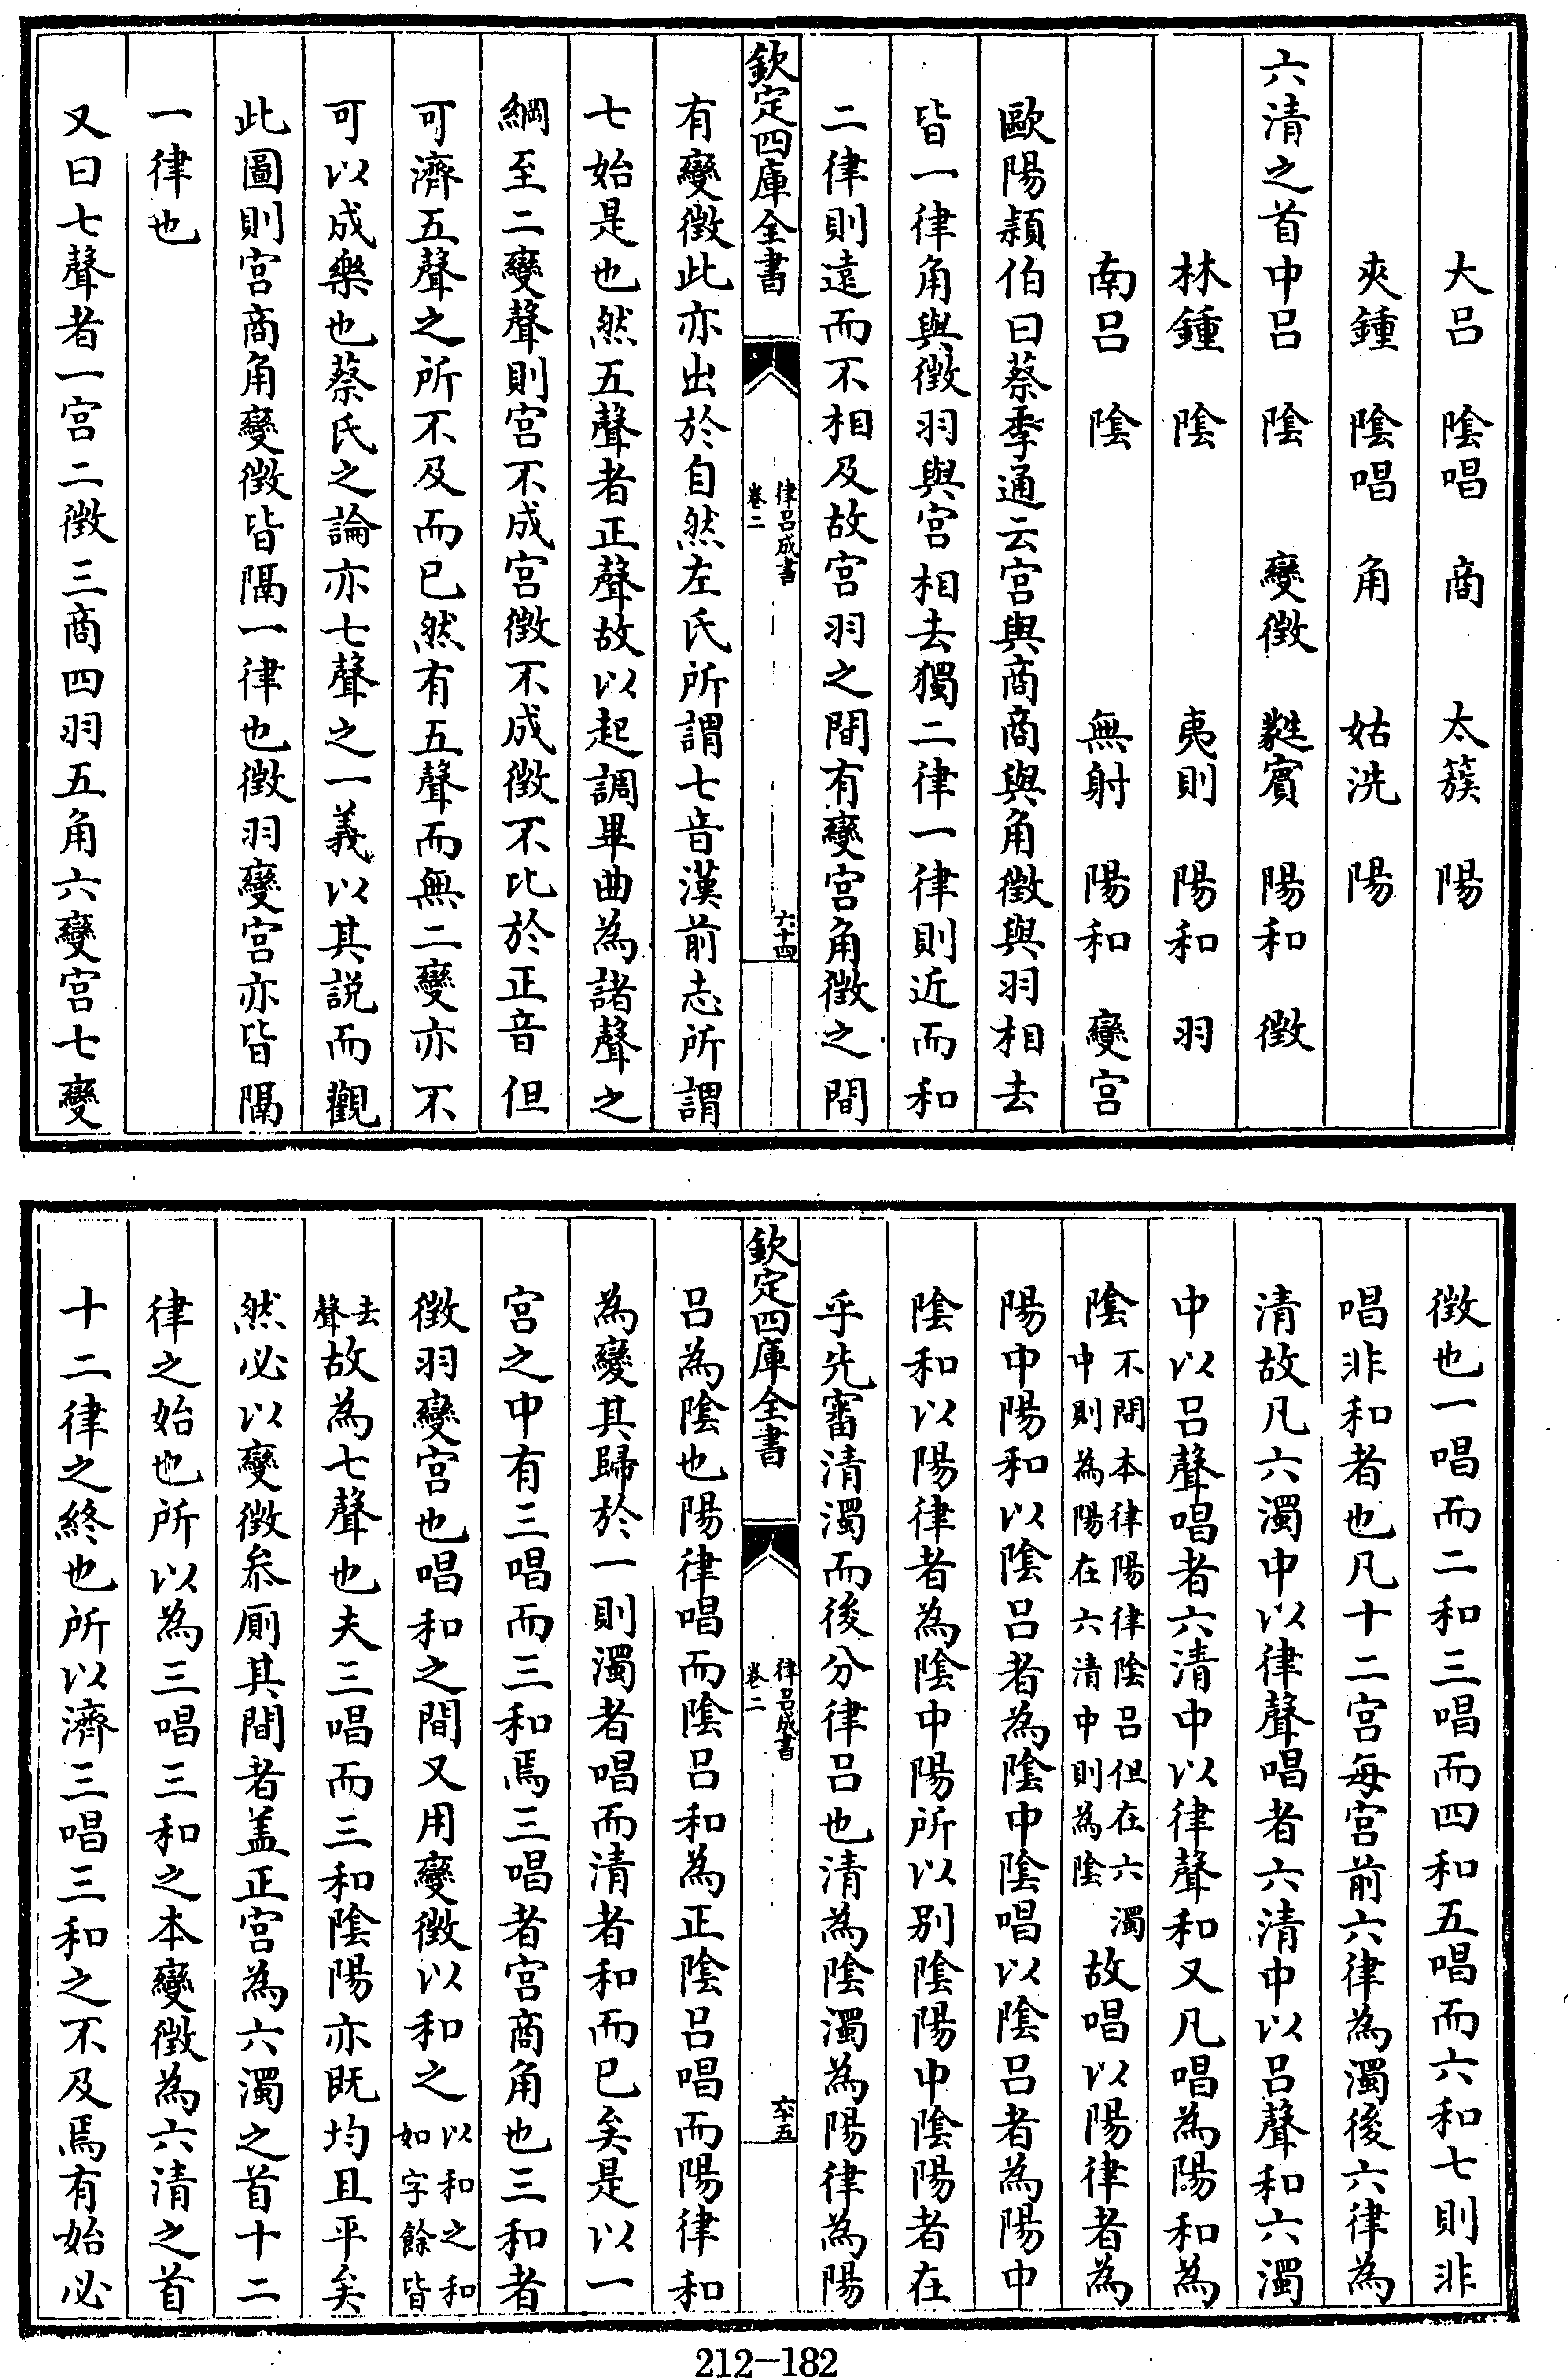 大吕　陰唱　商　太簇　陽
夾鍾　陰唱　角　姑洗　陽
六清之首中吕　陰　變徴　蕤賓　陽和　徴
林鍾　陰　夷則　陽和　羽
南吕　陰　無射　陽和　變宫
歐陽穎伯曰蔡季通云宫與商商與角徴與羽相去
皆一律角與徴羽與宫相去獨二律一律則近而和
二律則逺而不相及故宫羽之間有變宫角徴之間
欽定四庫全書
律吕成書
卷二
六十四
有變徴此亦出於自然左氏所謂七音漢前志所謂
七始是也然五聲者正聲故以起調畢曲為諸聲之
綱至二變聲則宫不成宫徴不成徴不比於正音但
可濟五聲之所不及而已然有五聲而無二變亦不
可以成樂也蔡氏之論亦七聲之一義以其説而觀
此圖則宫商角變徴皆隔一律也徴羽變宫亦皆隔
一律也
又曰七聲者一宫二徴三商四羽五角六變宫七變
徴也一唱而二和三唱而四和五唱而六和七則非
唱非和者也凡十二宫每宫前六律為濁後六律為
清故凡六濁中以律聲唱者六清中以吕聲和六濁
中以吕聲唱者六清中以律聲和又凡唱為陽和為
陰不問本律陽律陰吕但在六濁中則為陽在六清中則為陰故唱以陽律者為
陽中陽和以陰吕者為陰中陰唱以陰吕者為陽中
陰和以陽律者為陰中陽所以别陰陽中陰陽者在
乎先審清濁而後分律吕也清為陰濁為陽律為陽
欽定四庫全書
律吕成書
卷二
六十五
吕為陰也陽律唱而陰吕和為正陰吕唱而陽律和
為變其歸於一則濁者唱而清者和而已矣是以一
宫之中有三唱而三和焉三唱者宫商角也三和者
徴羽變宫也唱和之間又用變徴以和之以和之和如字餘皆
去聲故為七聲也夫三唱而三和陰陽亦既均且平矣
然必以變徴叅厠其間者盖正宫為六濁之首十二
律之始也所以為三唱三和之本變徴為六清之首
十二律之終也所以濟三唱三和之不及焉有始必
212-182